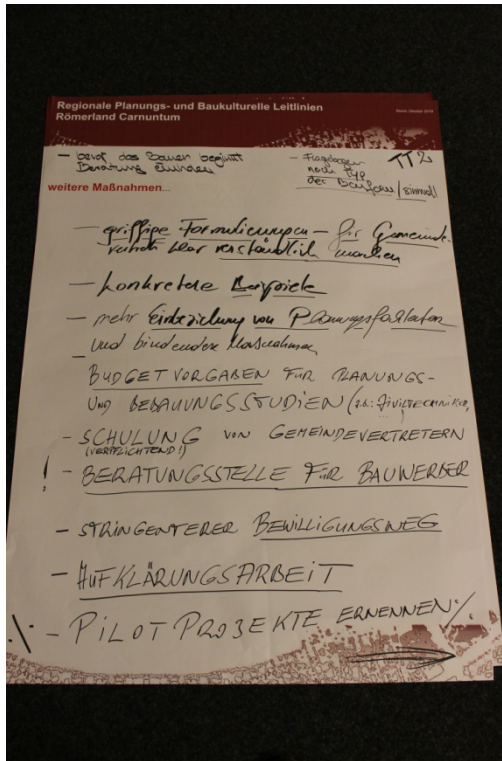 Regionale Planungs- und Baukulturelle Leitlinien
Römerland Carnuntum
Stand: Oktober 2018
– bevor das Bauen beginnt
Beratung
– Fragebogen
nach Typ
der Bauform/
TT2
weitere Maßnahmen...
– griffige Formulierungen – für Gemeinde-
klar verständlich machen
– konkretere Beispiele
– mehr Einbeziehung von Planungsfachleuten
– und bindendere Massnahmen
BUDGETVORGABEN FÜR PLANUNGS-
UND BEBAUUNGSSTUDIEN (z.b.: ZIVILTECHNIKER,
...!)
– SCHULUNG VON GEMEINDEVERTRETERN
(VERPFLICHTEND!)
! – BERATUNGSSTELLE FÜR BAUWERBER
– STRINGENTERER BEWILLIGUNGSWEG
– AUFKLÄRUNGSARBEIT
– PILOTPROJEKTE ERNENNEN